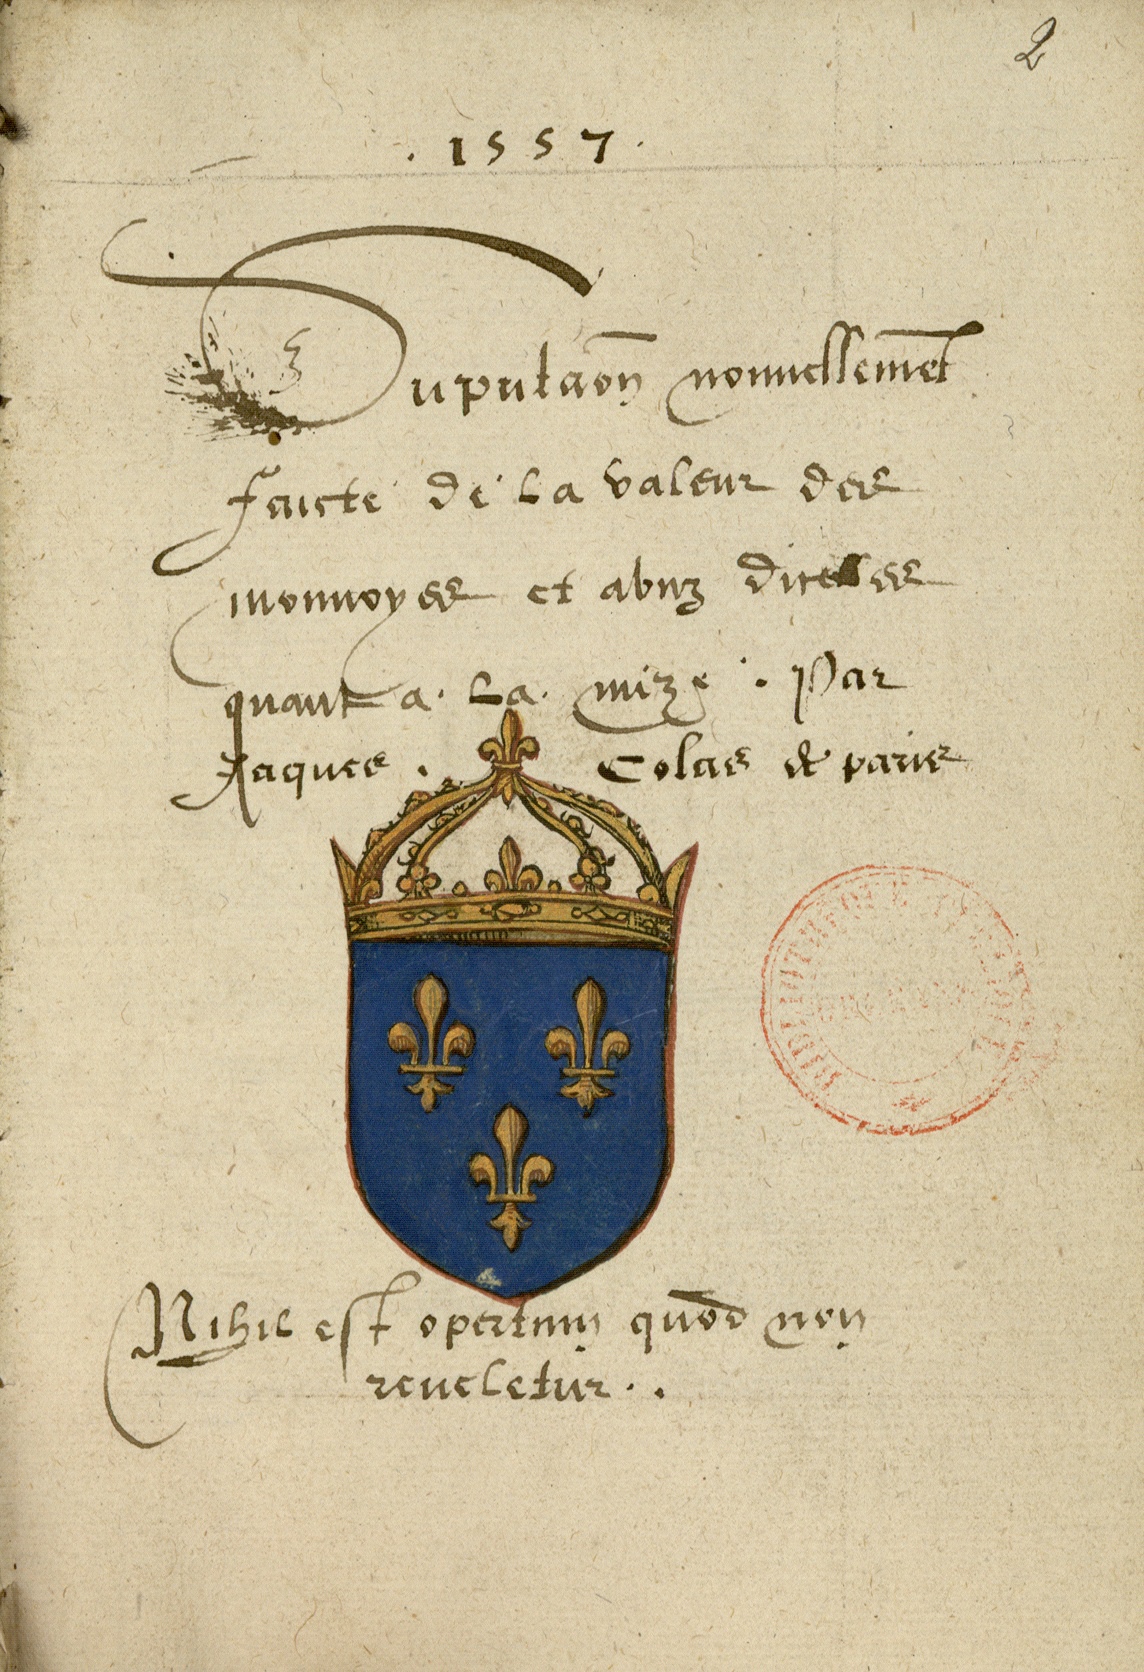 2
. 1557 .
Suputaōn nouvellemēt
faicte de la valeur des
monnoyes et abuz dicelles
quant a . la . mize . Par
Jaques . Colas de paris
Nihil est opertum quōd non
reveletur . .